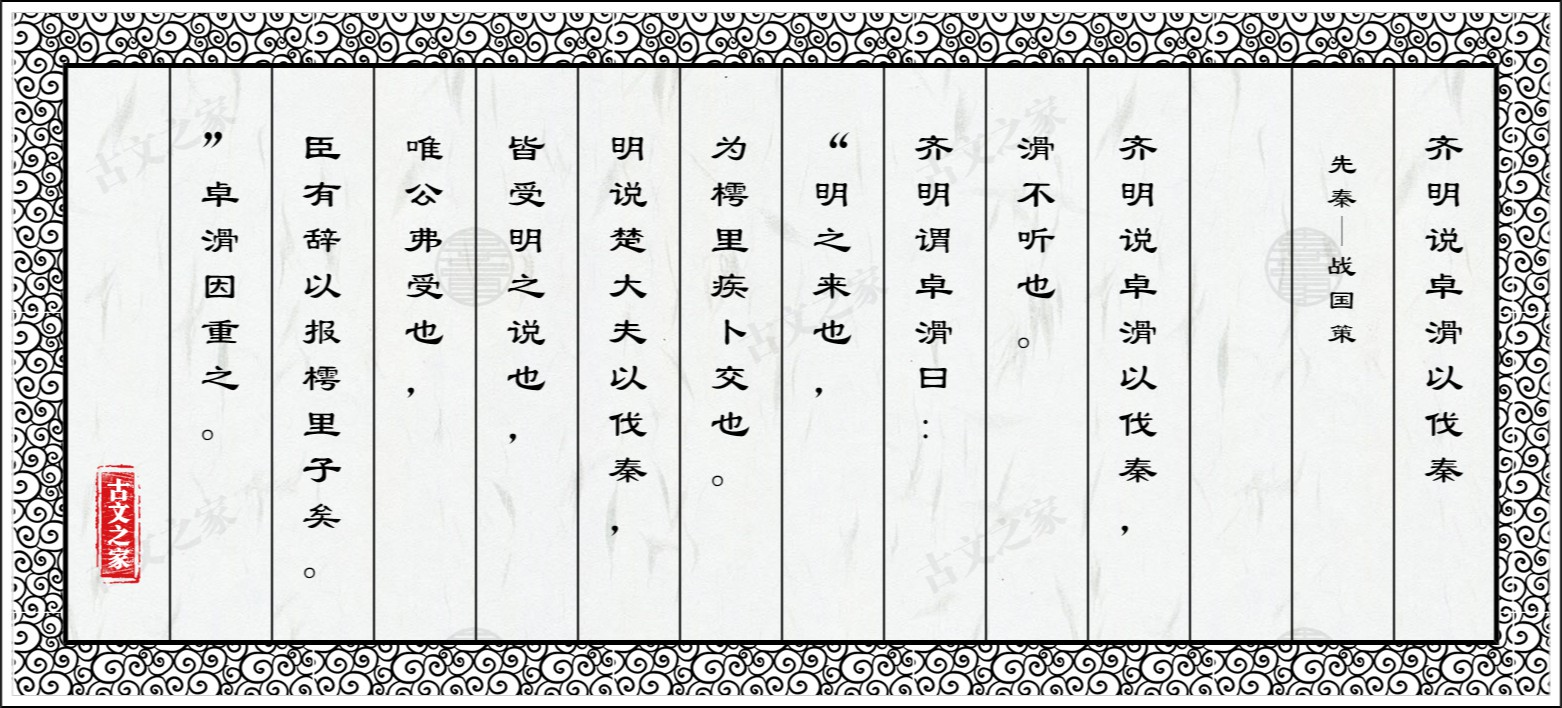 齐明说卓滑以伐秦
先秦—战国策
齐明说卓滑以伐秦，
滑不听也。
齐明谓卓滑曰：
“明之来也，
为樗里疾卜交也。
明说楚大夫以伐秦，
皆受明之说也，
唯公弗受也，
臣有辞以报樗里子矣。
”卓滑因重之。
古文之家